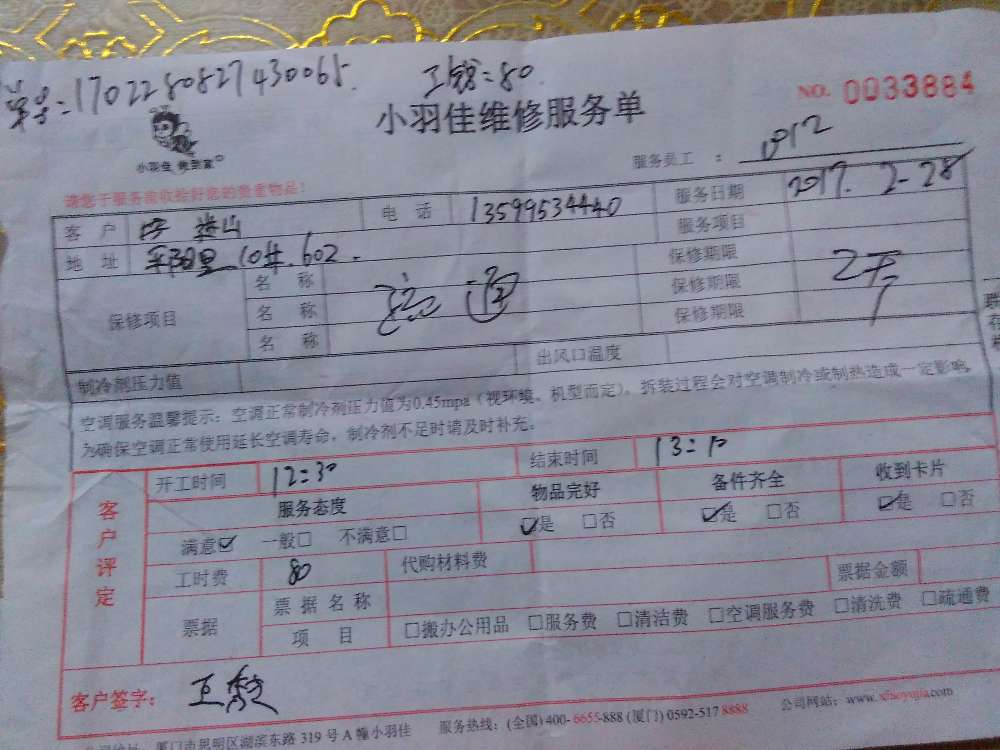 单号=1702280827430065. 工钱=80.
NO. 0033884
小羽佳维修服务单
小羽佳
服务员工 : 1012
请您于服务前收拾好您的贵重物品!
客 户 电 话 13599534440 服务日期 2017. 2-28
地 址 10# . 602 . 服务项目
保修项目 名 称 保修期限
名 称 保修期限
名 称 保修期限
制冷剂压力值 出风口温度
空调服务温馨提示: 空调正常制冷剂压力值为0.45mpa (视环境、机型而定), 拆装过程会对空调制冷或制热造成一定影响,
为确保空调正常使用延长空调寿命, 制冷剂不足时请及时补充。
客户评定
开工时间 12=30 结束时间 13=10
服务态度 物品完好 备件齐全 收到卡片
满意☑ 一般□ 不满意□ ☑是 □否 ☑是 □否 ☑是 □否
工时费 80 代购材料费 票据金额
票据 票 据 名 称
项 目 □搬办公用品 □服务费 □清洁费 □空调服务费 □清洗费 □疏通费
客户签字:
厦门市思明区湖滨东路 319 号 A 幢小羽佳 服务热线: (全国) 400-6655-888 (厦门) 0592-517 8888 公司网站: www.xiaoyujia.com